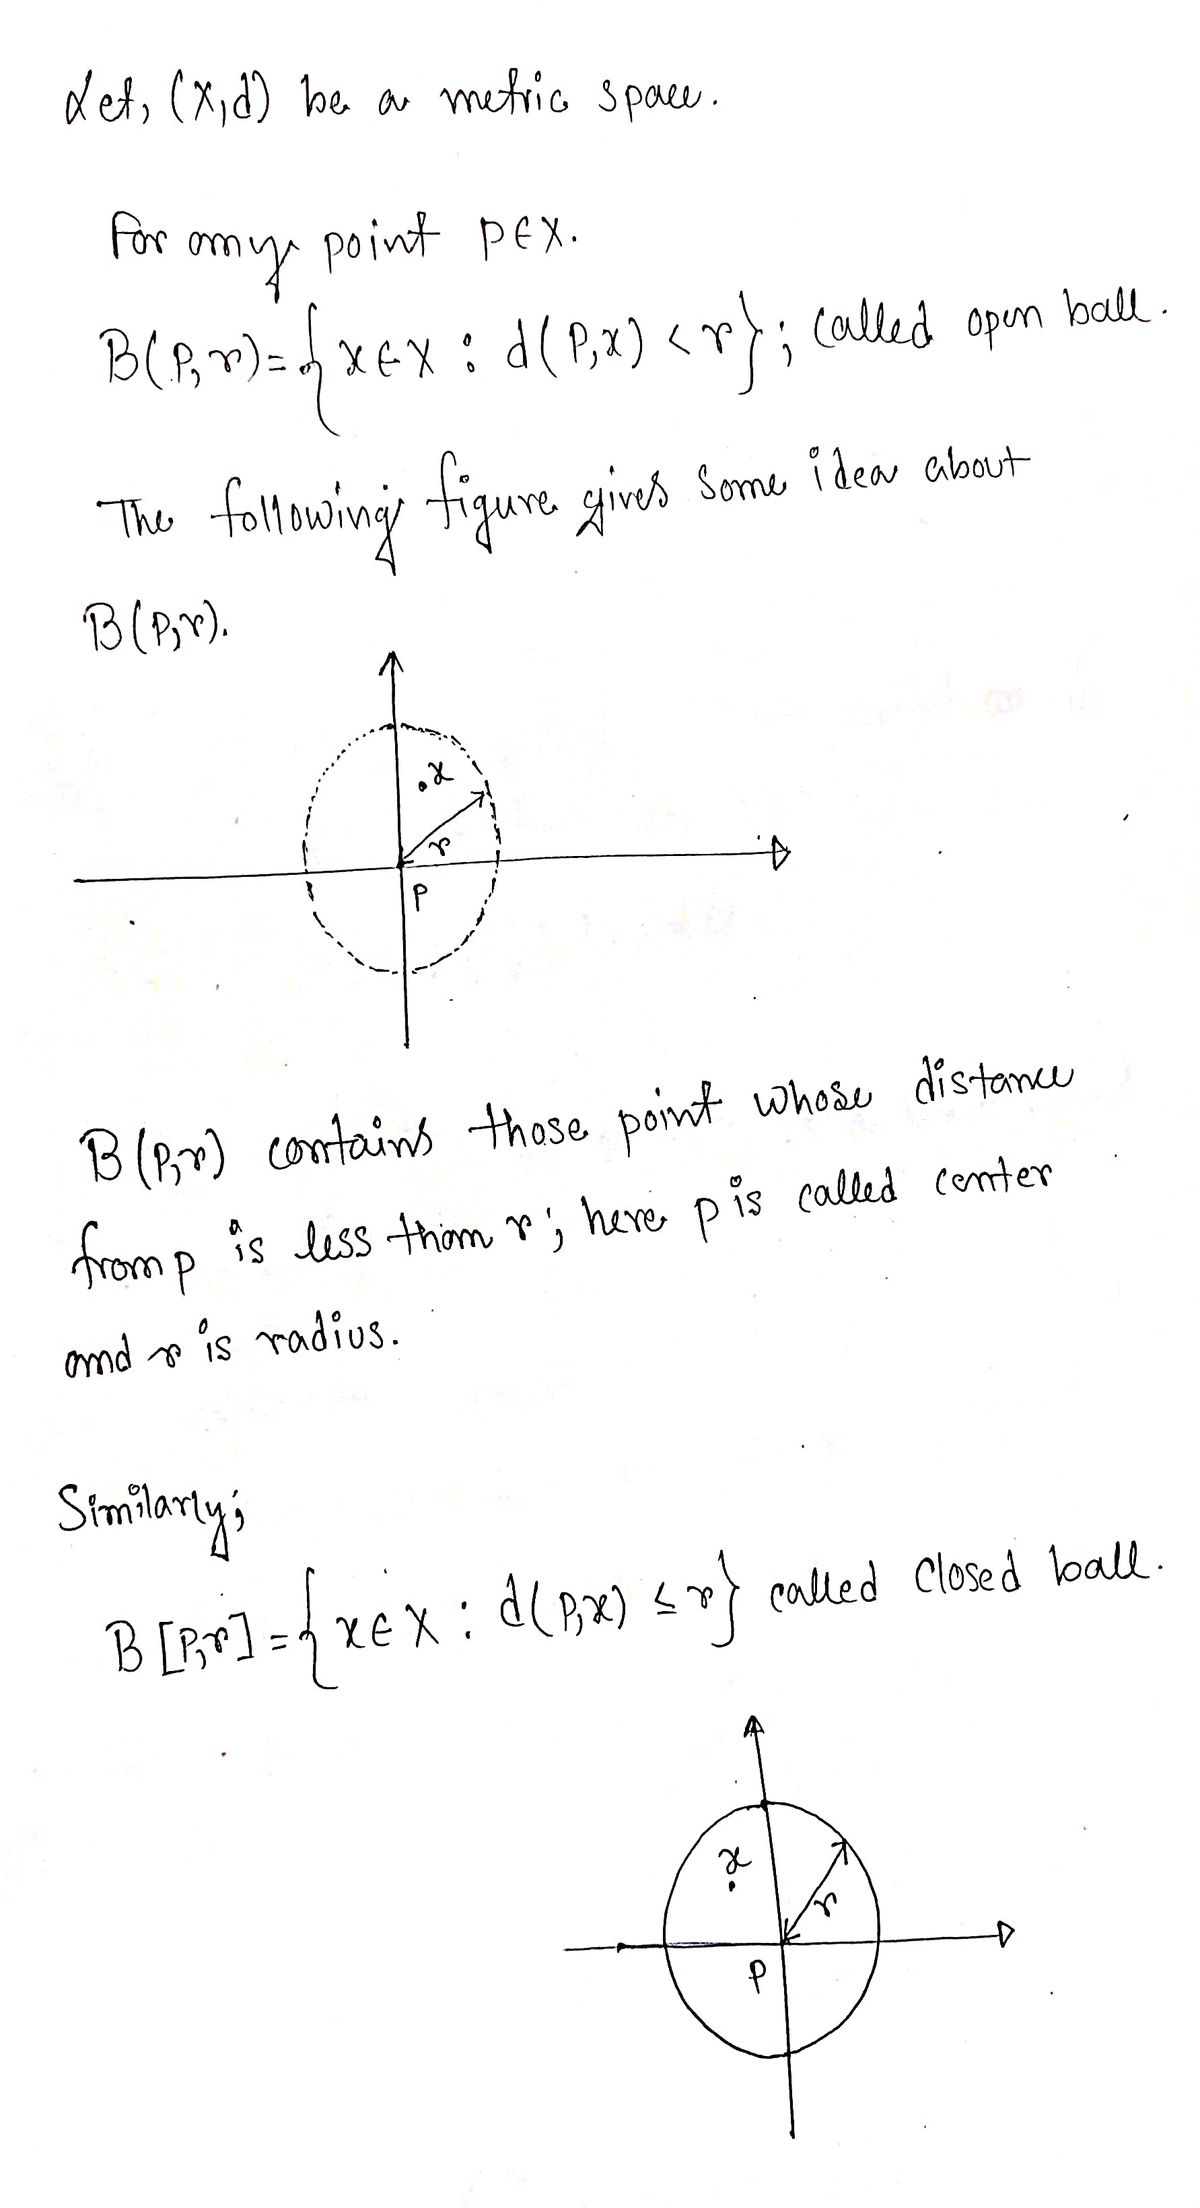 Let, (X,d) be a metric space.
For any point P∈X.
B(P,r)={x∈X : d(P,x) < r}; called open ball.
The following figure gives some idea about
B(P,r).
x
r
P
B(P,r) contains those point whose distance
from p is less than r; here p is called center
and r is radius.
Similarly;
B[P,r]={x∈X : d(P,x) ≤ r} called closed ball.
x
r
P